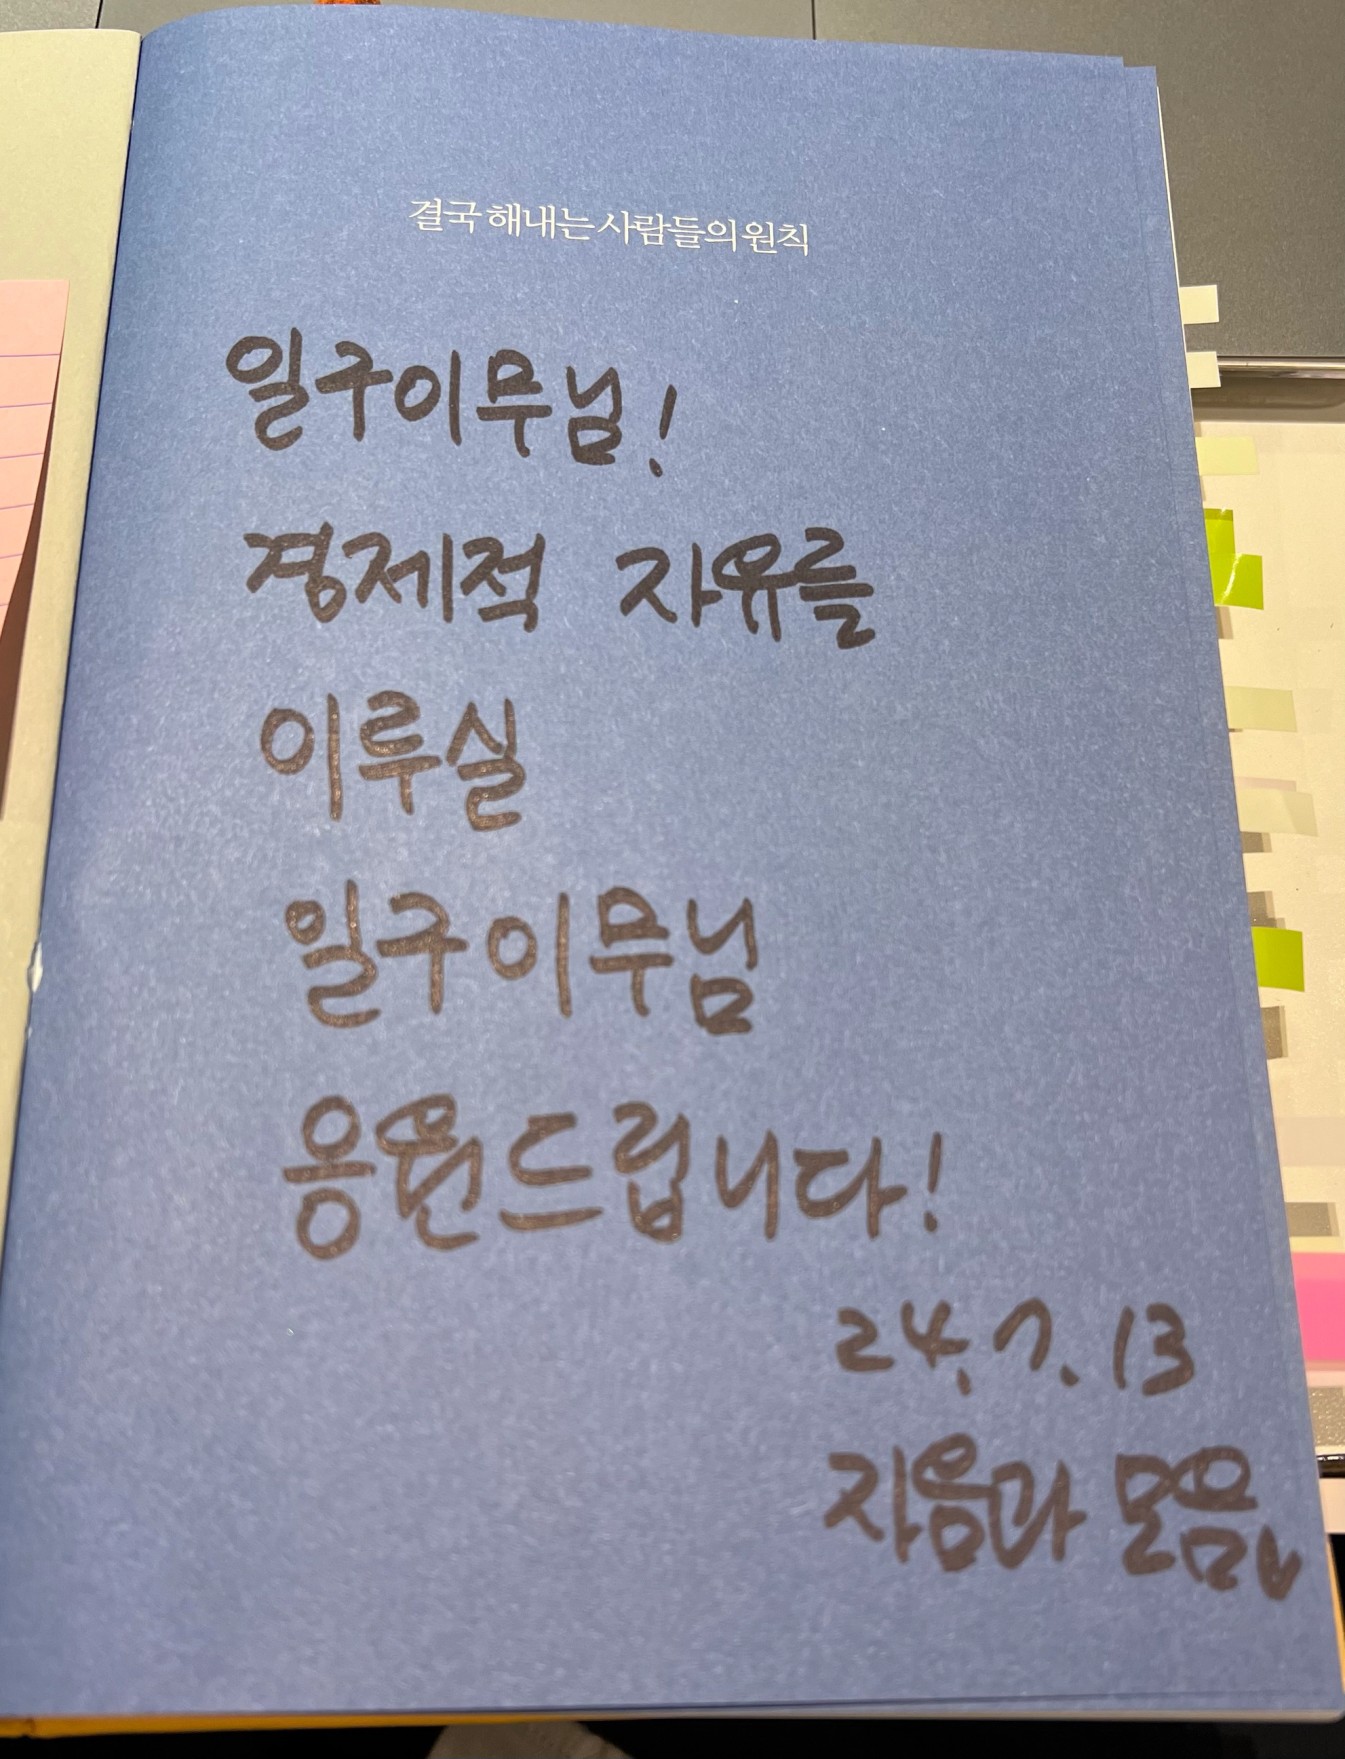 결국 해내는 사람들의 원칙
일구이무님!
경제적 자유를
이루실
일구이무님
응원드립니다!
24.7.13
자음과 모음